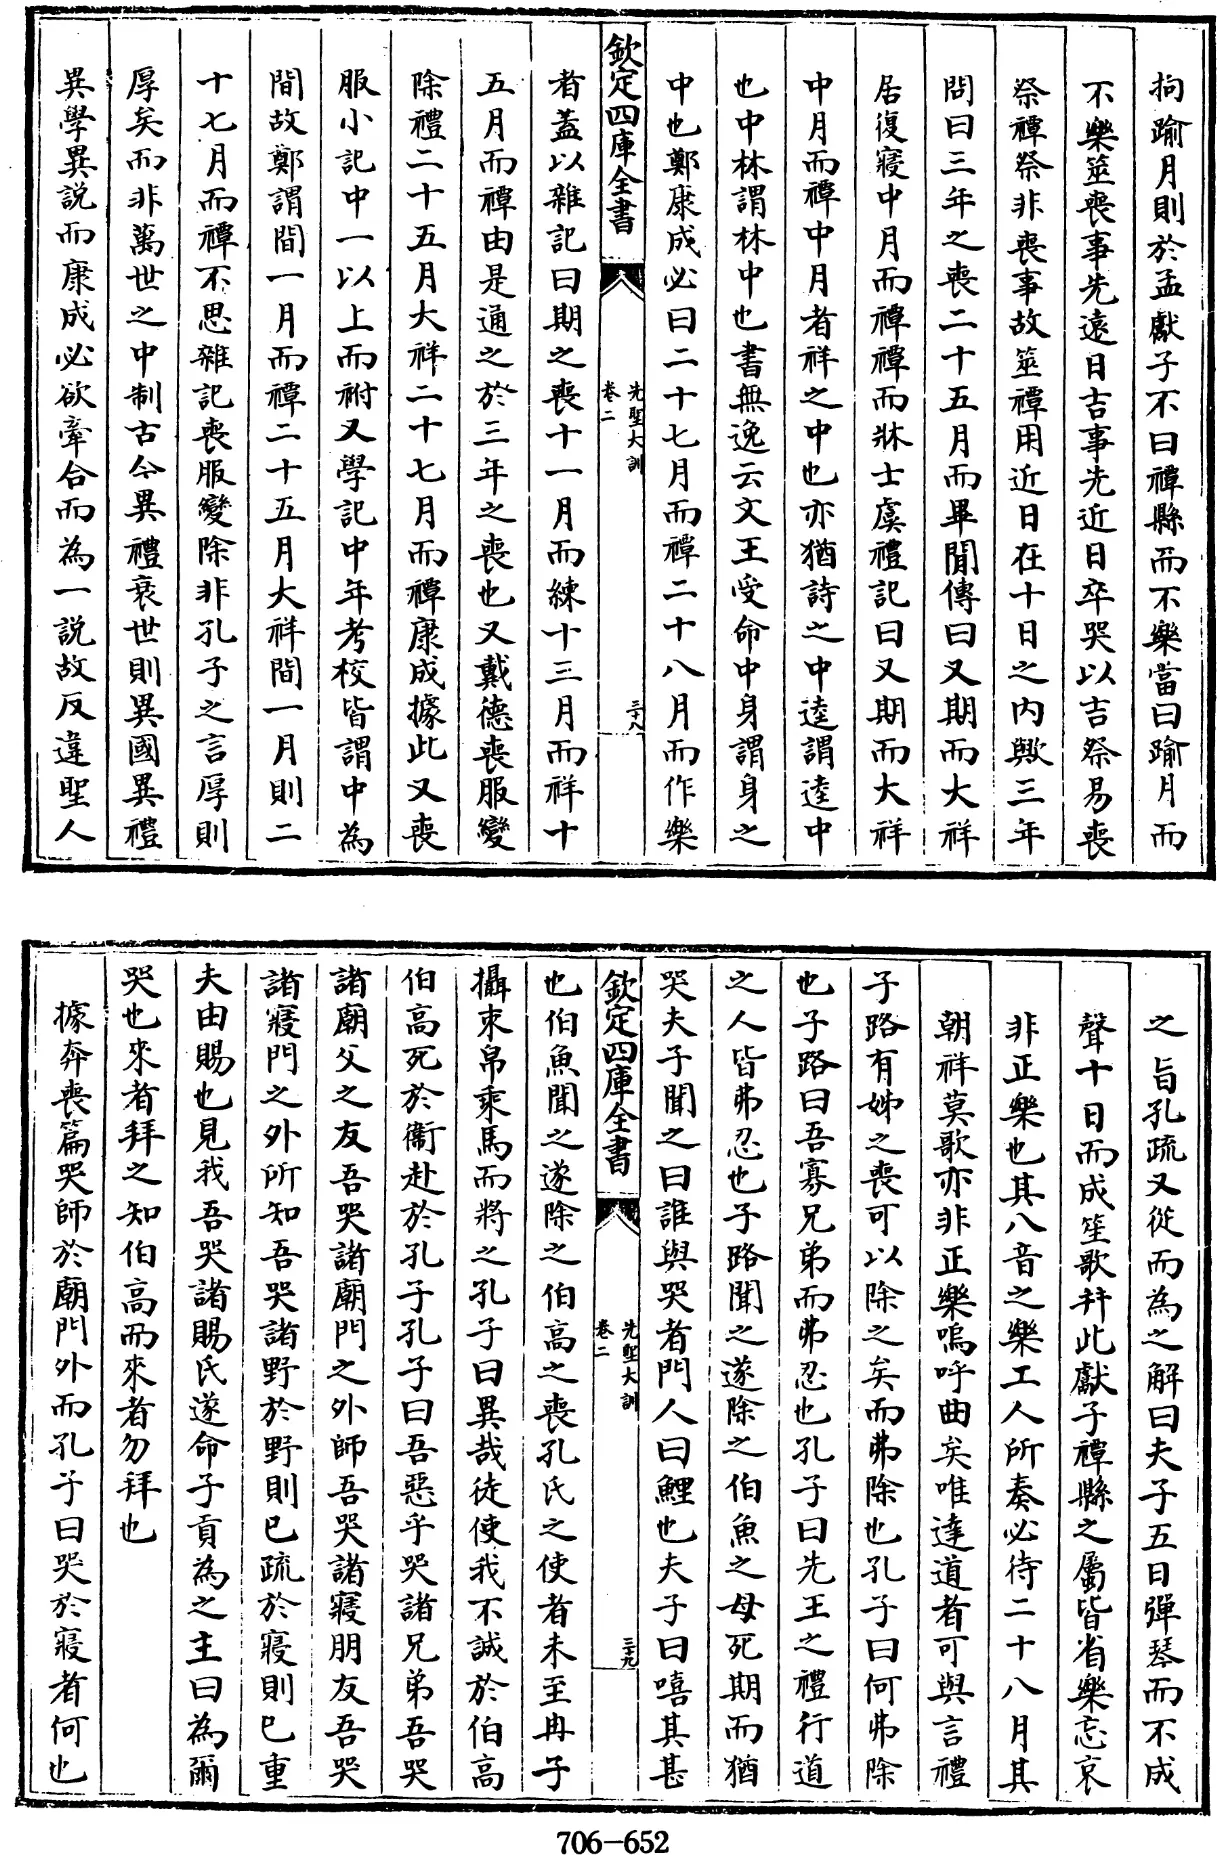 拘踰月則於孟獻子不曰禫縣而不樂當曰踰月而
不樂筮喪事先遠日吉事先近日卒哭以吉祭易喪
祭禫祭非喪事故筮禫用近日在十日之內歟三年
問曰三年之喪二十五月而畢閒傳曰又期而大祥
居復寢中月而禫禫而牀士虞禮記曰又期而大祥
中月而禫中月者祥之中也亦猶詩之中逵謂逵中
也中林謂林中也書無逸云文王受命中身謂身之
中也鄭康成必曰二十七月而禫二十八月而作樂
欽定四庫全書
先聖大訓
卷二
三十八
者蓋以雜記曰期之喪十一月而練十三月而祥十
五月而禫由是通之於三年之喪也又戴德喪服變
除禮二十五月大祥二十七月而禫康成據此又喪
服小記中一以上而祔又學記中年考校皆謂中為
間故鄭謂間一月而禫二十五月大祥間一月則二
十七月而禫不思雜記喪服變除非孔子之言厚則
厚矣而非萬世之中制古今異禮衰世則異國異禮
異學異說而康成必欲牽合而為一說故反違聖人
之旨孔疏又從而為之解曰夫子五日彈琴而不成
聲十日而成笙歌幷此獻子禫縣之屬皆省樂忘哀
非正樂也其八音之樂工人所奏必待二十八月其
朝祥莫歌亦非正樂嗚呼曲矣唯達道者可與言禮
子路有姊之喪可以除之矣而弗除也孔子曰何弗除
也子路曰吾寡兄弟而弗忍也孔子曰先王之禮行道
之人皆弗忍也子路聞之遂除之伯魚之母死期而猶
哭夫子聞之曰誰與哭者門人曰鯉也夫子曰嘻其甚
欽定四庫全書
先聖大訓
卷二
三十九
也伯魚聞之遂除之伯高之喪孔氏之使者未至冉子
攝束帛乘馬而將之孔子曰異哉徒使我不誠於伯高
伯高死於衞赴於孔子孔子曰吾惡乎哭諸兄弟吾哭
諸廟父之友吾哭諸廟門之外師吾哭諸寢朋友吾哭
諸寢門之外所知吾哭諸野於野則已疏於寢則已重
夫由賜也見我吾哭諸賜氏遂命子貢為之主曰為爾
哭也來者拜之知伯高而來者勿拜也
據奔喪篇哭師於廟門外而孔子曰哭於寢者何也
706-652